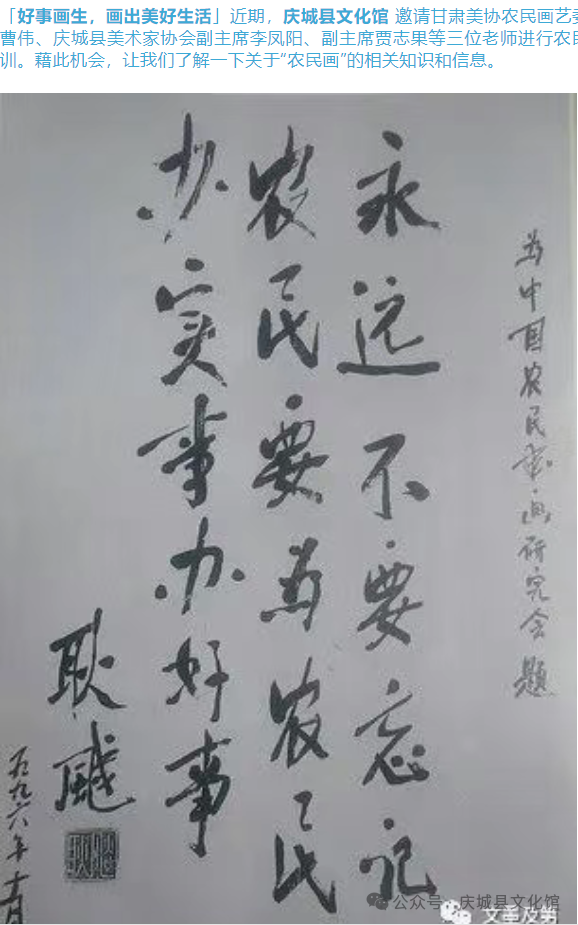 「好事画生，画出美好生活」近期，庆城县文化馆 邀请甘肃美协农民画艺
曹伟、庆城县美术家协会副主席李凤阳、副主席贾志果等三位老师进行农民
训。藉此机会，让我们了解一下关于“农民画”的相关知识和信息。
为中国农民书画研究会题
永远不要忘记
农民要为农民
办实事办好事
耿飚
一九九六年十一月
公众号·庆城县文化馆